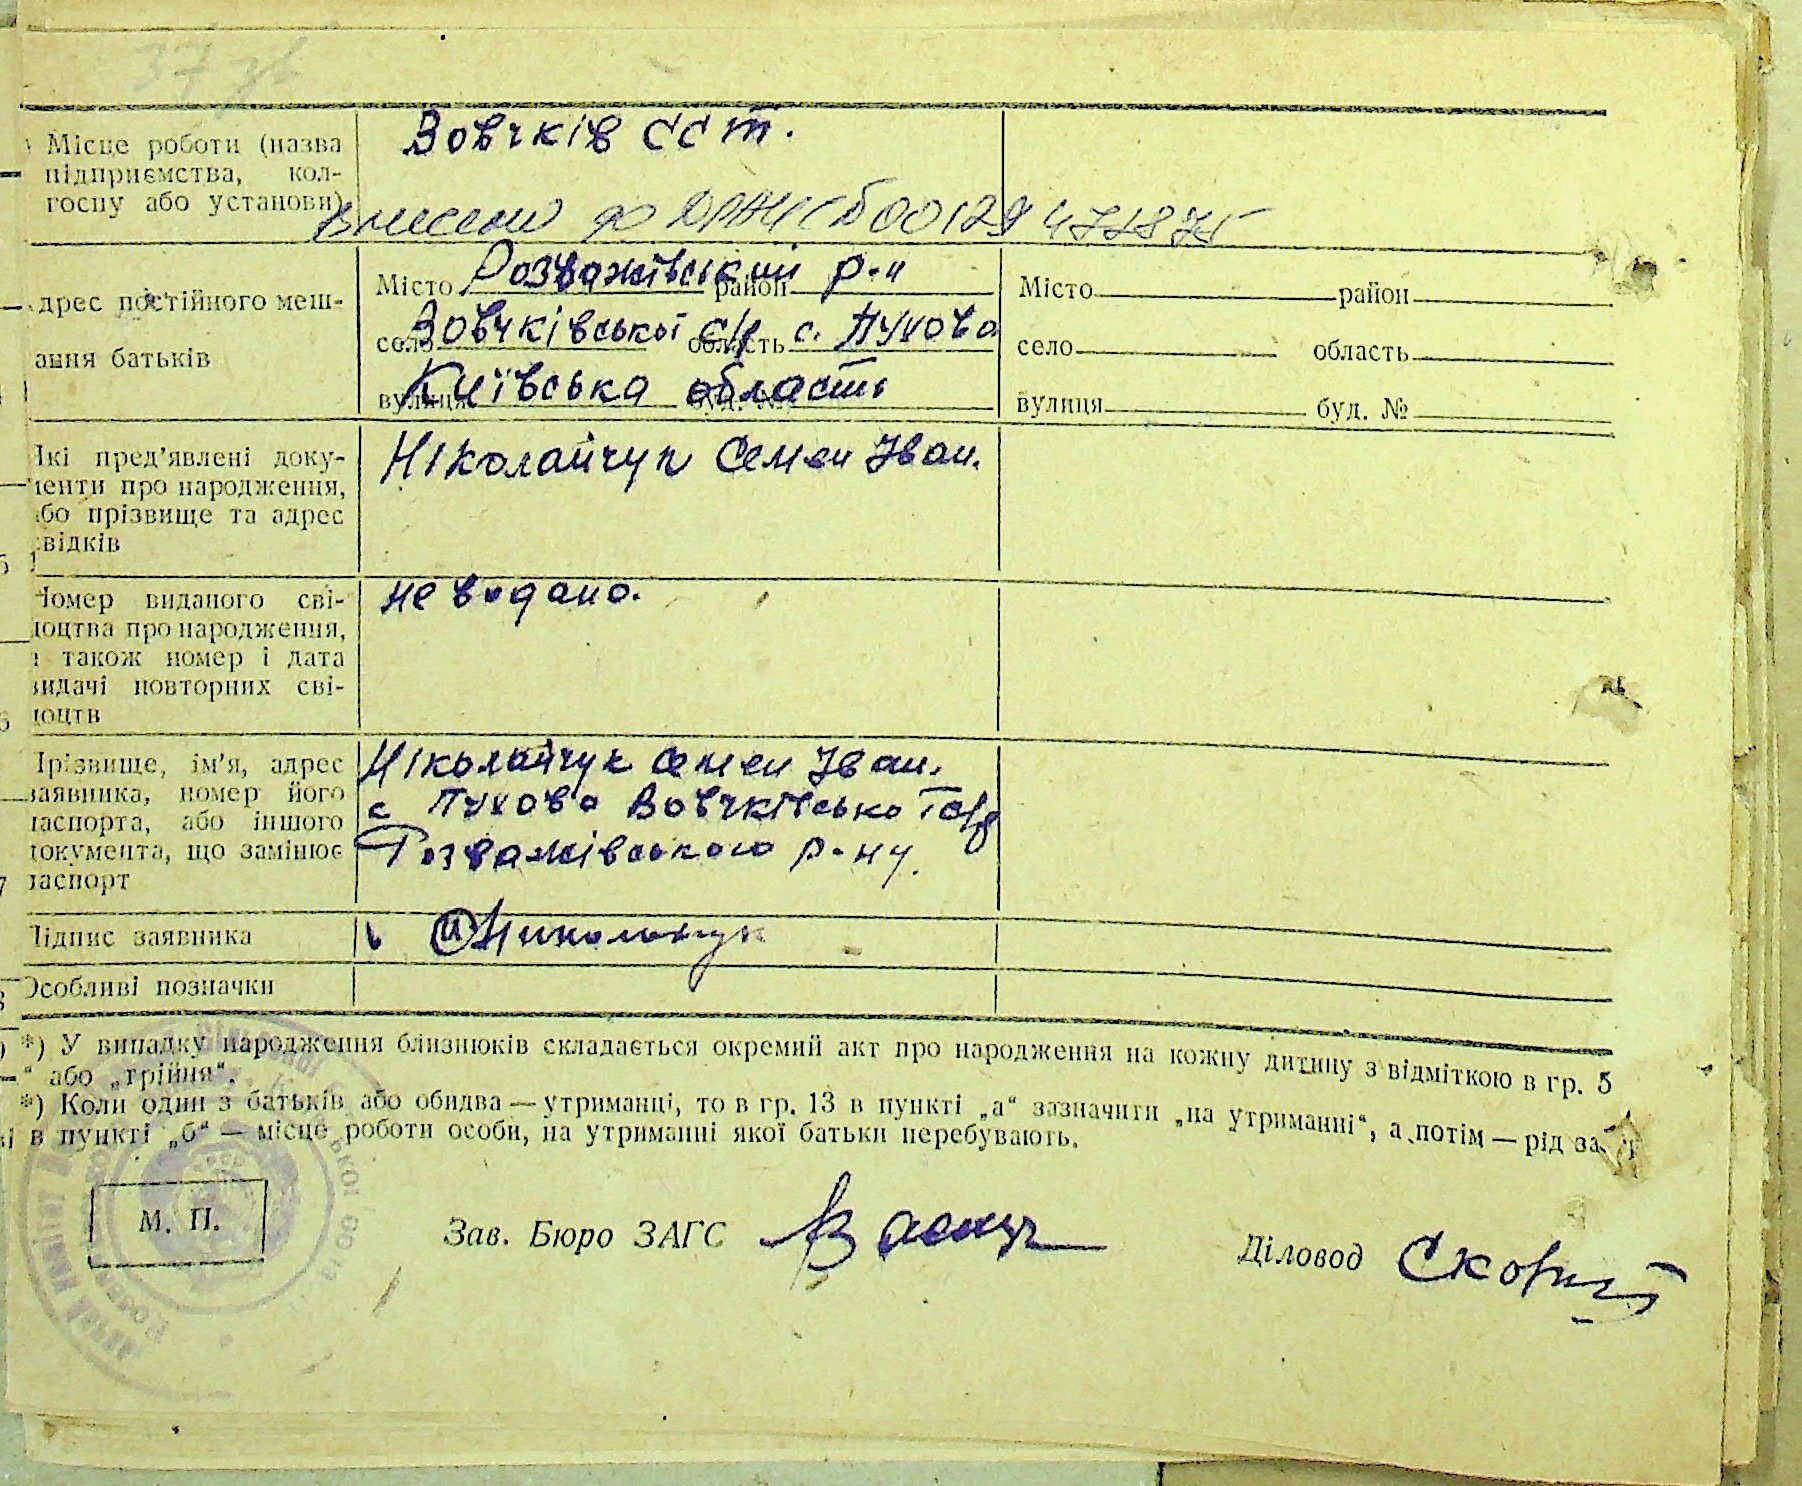 Місце роботи (назва
підприємства, кол-
госпу або установи)
Вовчків ССТ.
Внесено до ДРАЦС 00129471875
дрес постійного меш-
ання батьків
Місто Розважівський район р-н
село Вовчківської с/р область с. Пухово
вулиця Київська область буд. №
Місто район
село область
вулиця буд. №
Які пред'явлені доку-
менти про народження,
або прізвище та адрес
свідків
Ніколайчук Семен Іван.
Номер виданого сві-
доцтва про народження,
а також номер і дата
видачі повторних сві-
доцтв
не видано.
Прізвище, ім'я, адрес
заявника, номер його
паспорта, або іншого
документа, що замінює
паспорт
Ніколайчук Семен Іван.
с Пухово Вовчківської с/р
Розважівського р-ну.
Підпис заявника
Николайчук
Особливі позначки
*) У випадку народження близнюків складається окремий акт про народження на кожну дитину з відміткою в гр. 5
“ або „трійня“.
*) Коли один з батьків або обидва — утриманці, то в гр. 13 в пункті „а“ зазначити „на утриманні“, а потім — рід за
і в пункті „б“ — місце роботи особи, на утриманні якої батьки перебувають.
М. П.
Зав. Бюро ЗАГС
Діловод